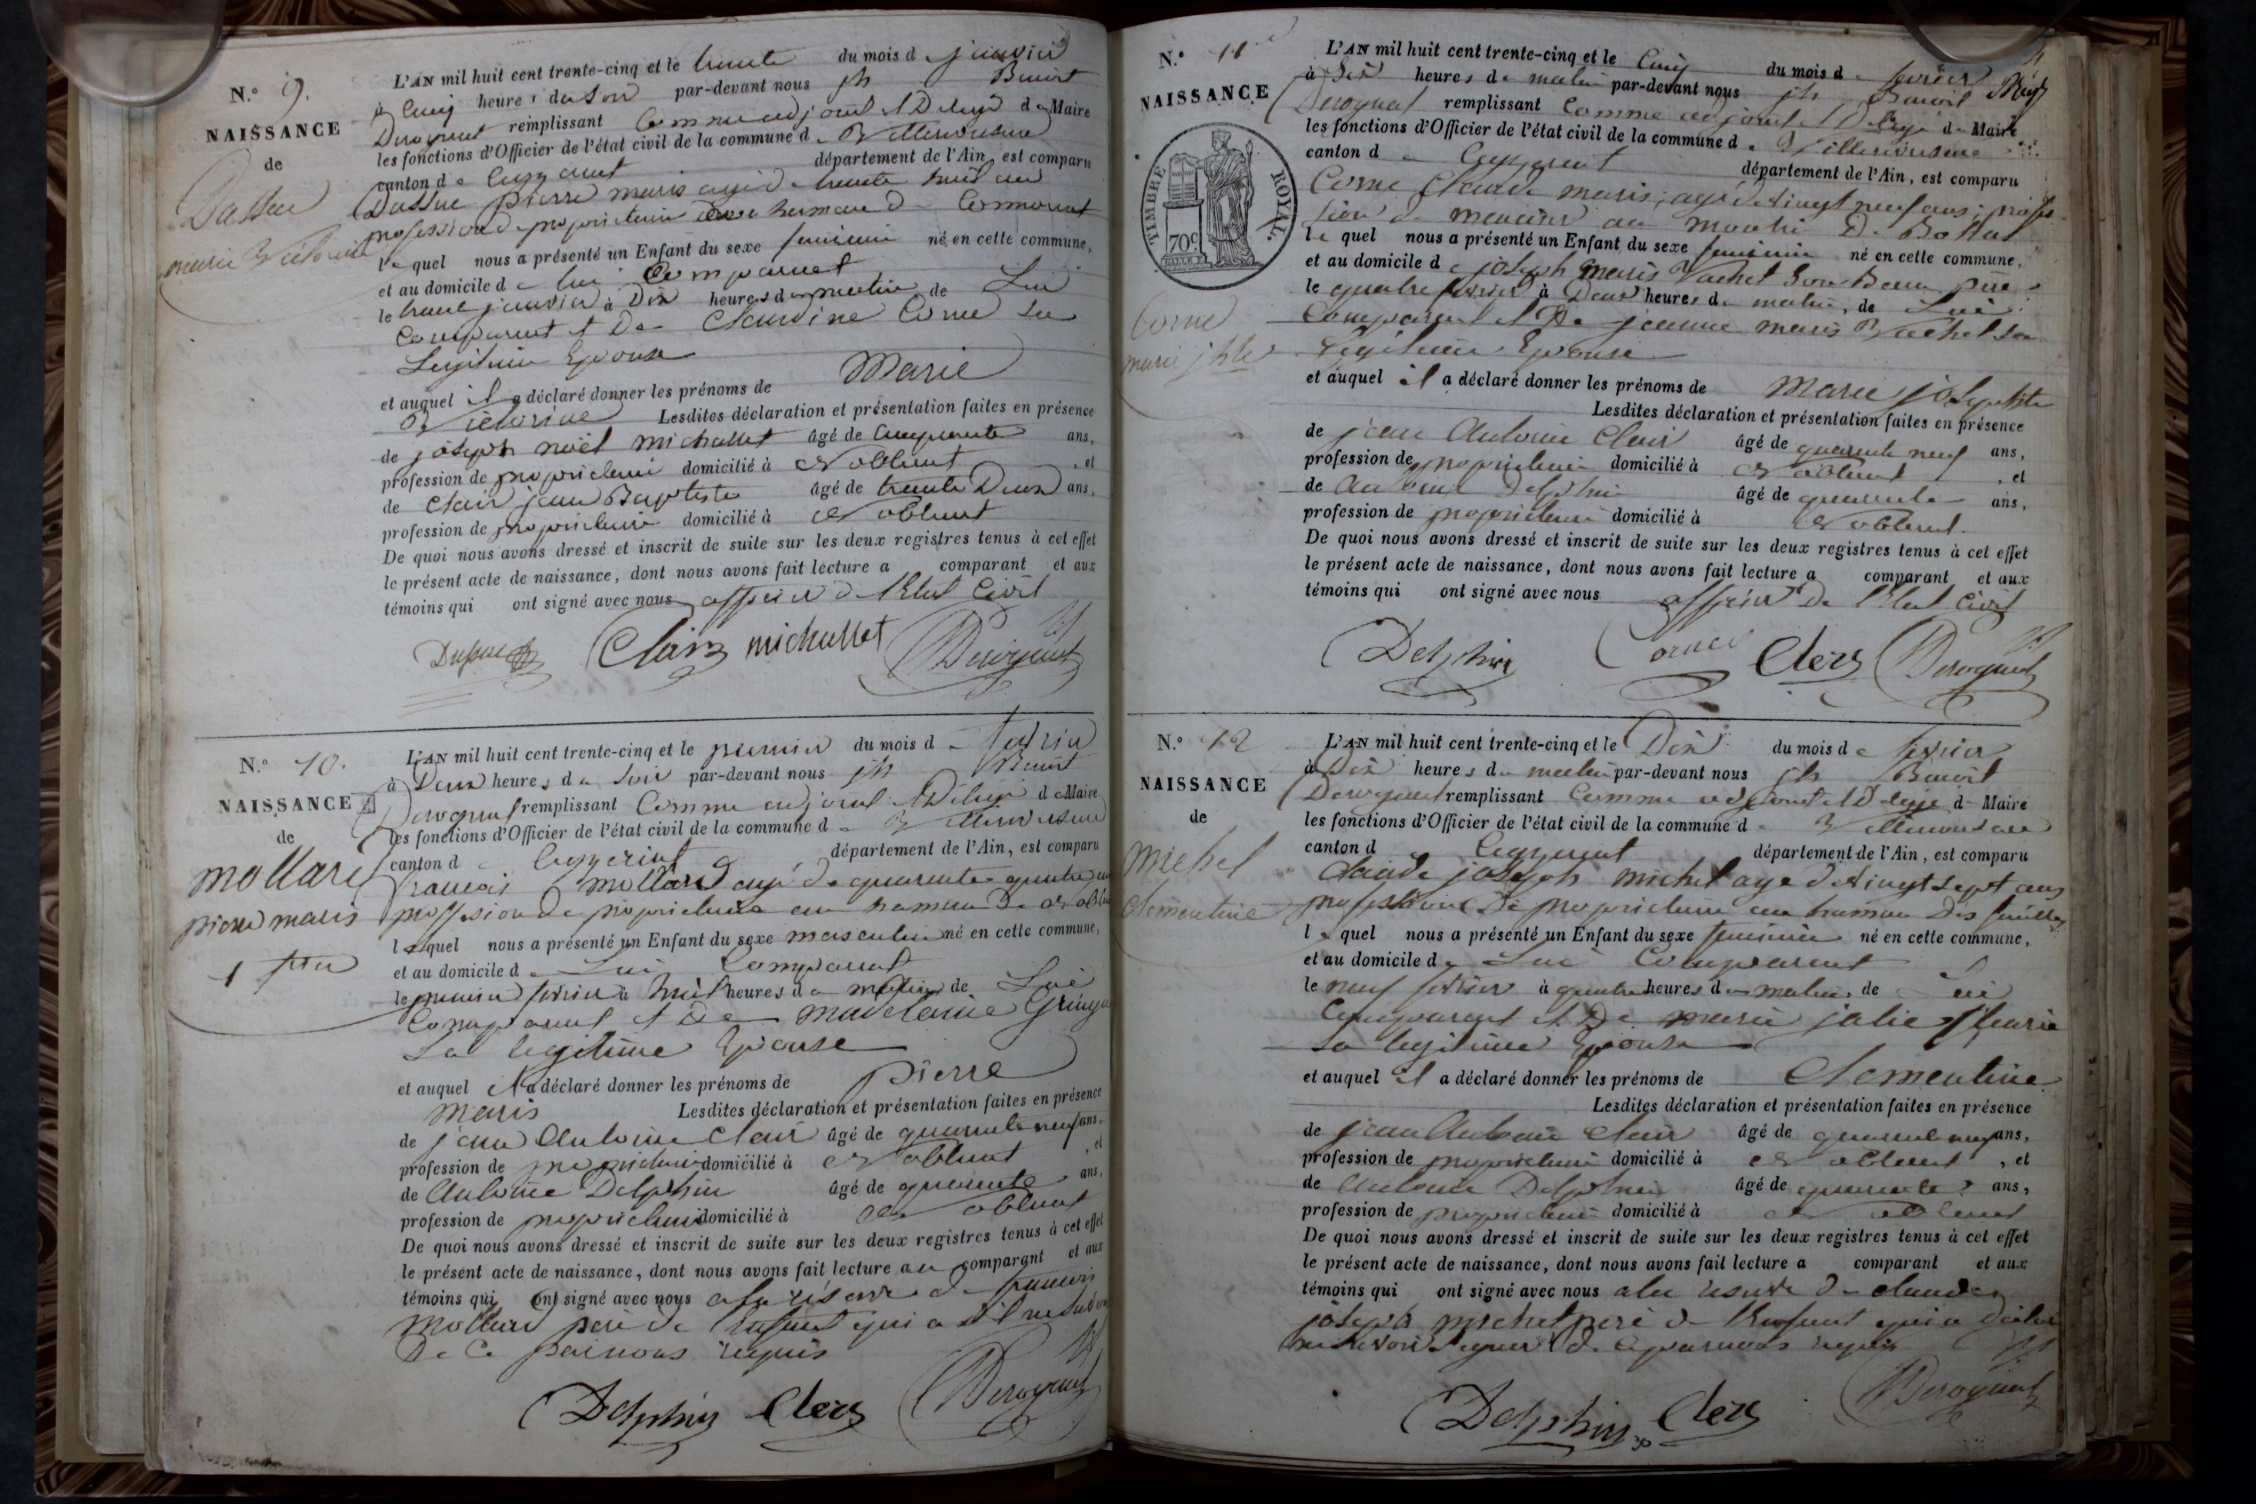 N.º 9.
NAISSANCE
de
Dassue
marie Victorine
L'AN mil huit cent trente-cinq et le trente du mois de janvier
à cinq heures du soir par-devant nous jh Benoit
Derognat remplissant comme adjoint et Délégué de Maire
les fonctions d'Officier de l'état civil de la commune de Villereversure
canton de Ceyzeriat département de l'Ain est comparu
Dassue pierre marie agé de trente huit ans
profession de propriétaire au hameau de Cormorant
lequel nous a présenté un Enfant du sexe feminin né en cette commune,
et au domicile de lui Comparant
le trente janvier à Dix heures du matin de Lui
Comparant et De Claudine Corne sa
Legitime Epouse
et auquel il a déclaré donner les prénoms de Marie
Victorine Lesdites déclaration et présentation faites en présence
de joseph noël michallet âgé de cinquante ans,
profession de propriétaire domicilié à Noblens, et
de Clair jean Baptiste âgé de trente Deux ans,
profession de propriétaire domicilié à Noblens
De quoi nous avons dressé et inscrit de suite sur les deux registres tenus à cet effet
le présent acte de naissance, dont nous avons fait lecture a comparant et aux
témoins qui ont signé avec nous officier de l'Etat Civil
Clair michallet Derognat
N.º 10.
NAISSANCE
de
mollard
pierre marie
L'AN mil huit cent trente-cinq et le premier du mois de fevrier
à Deux heures du soir par-devant nous jh Benoit
Derognat remplissant Comme adjoint et Délégué de Maire
les fonctions d'Officier de l'état civil de la commune de Villereversure
canton de Ceyzeriat département de l'Ain, est comparu
francois mollard agé de quarante quatre ans
proffession de propriétaire au hameau De Noblens
lequel nous a présenté un Enfant du sexe masculin né en cette commune,
et au domicile de Lui Comparant
le premier fevrier à huit heures du matin de Lui
Comparant et De madelaine
La legitime Epouse
et auquel il a déclaré donner les prénoms de pierre
marie Lesdites déclaration et présentation faites en présence
de jean Antoine Clair âgé de quarante neuf ans,
profession de propriétaire domicilié à Noblens, et
de Antoine Delphin âgé de quarante ans,
profession de propriétaire domicilié à Noblens
De quoi nous avons dressé et inscrit de suite sur les deux registres tenus à cet effet
le présent acte de naissance, dont nous avons fait lecture au comparant et aux
témoins qui ont signé avec nous a la réserve de francois
Mollard pere de l'enfant qui a dit ne savoir
De Ce par nous requis
Delphin Clerc Derognat
N.º 11
NAISSANCE
TIMBRE ROYAL.
70c
Corne
marie jhte
L'AN mil huit cent trente-cinq et le Cinq du mois de fevrier
à Dix heures du matin par-devant nous jh Benoit
Derognat remplissant Comme adjoint et Délégué de Maire
les fonctions d'Officier de l'état civil de la commune de Villereversure
canton de Ceyzeriat département de l'Ain, est comparu
Corne Claude marie, agé de vingt neuf ans, profes-
sion de meunier au moulin De
le quel nous a présenté un Enfant du sexe feminin né en cette commune,
et au domicile de joseph marie Vachet son Beau pere
le quatre fevrier à Deux heures du matin, de Lui
Comparant et De jeanne marie Vachet sa
Legitime Epouse
et auquel il a déclaré donner les prénoms de Marie josephte
Lesdites déclaration et présentation faites en présence
de jean Antoine Clair âgé de quarante neuf ans,
profession de propriétaire domicilié à Noblens, et
de Antoine Delphin âgé de quarante ans,
profession de propriétaire domicilié à Noblens.
De quoi nous avons dressé et inscrit de suite sur les deux registres tenus à cet effet
le présent acte de naissance, dont nous avons fait lecture a comparant et aux
témoins qui ont signé avec nous officier De l'Etat Civil
Delphin Corne Clerc Derognat
N.º 12
NAISSANCE
de
michel
Clementine
L'AN mil huit cent trente-cinq et le Dix du mois de fevrier
à Dix heures du matin par-devant nous jh Benoit
Derognat remplissant Comme adjoint et Délégué de Maire
les fonctions d'Officier de l'état civil de la commune de Villereversure
canton d Ceyzeriat département de l'Ain, est comparu
Claude joseph michel agé de vingt sept ans
profession De propriétaire au hameau Des
lequel nous a présenté un Enfant du sexe feminin né en cette commune,
et au domicile de Lui Comparant
le neuf fevrier à quatre heures du matin, de Lui
Comparant et De marie julie
La legitime Epouse
et auquel il a déclaré donner les prénoms de Clementine
Lesdites déclaration et présentation faites en présence
de jean Antoine Clair âgé de quarante neuf ans,
profession de propriétaire domicilié à Noblens, et
de Antoine Delphin âgé de quarante ans,
profession de propriétaire domicilié à Noblens
De quoi nous avons dressé et inscrit de suite sur les deux registres tenus à cet effet
le présent acte de naissance, dont nous avons fait lecture a comparant et aux
témoins qui ont signé avec nous a la réserve de claude
joseph michel pere de l'Enfant qui a déclaré
ne savoir signer De ce par nous requis
Delphin Clerc Derognat